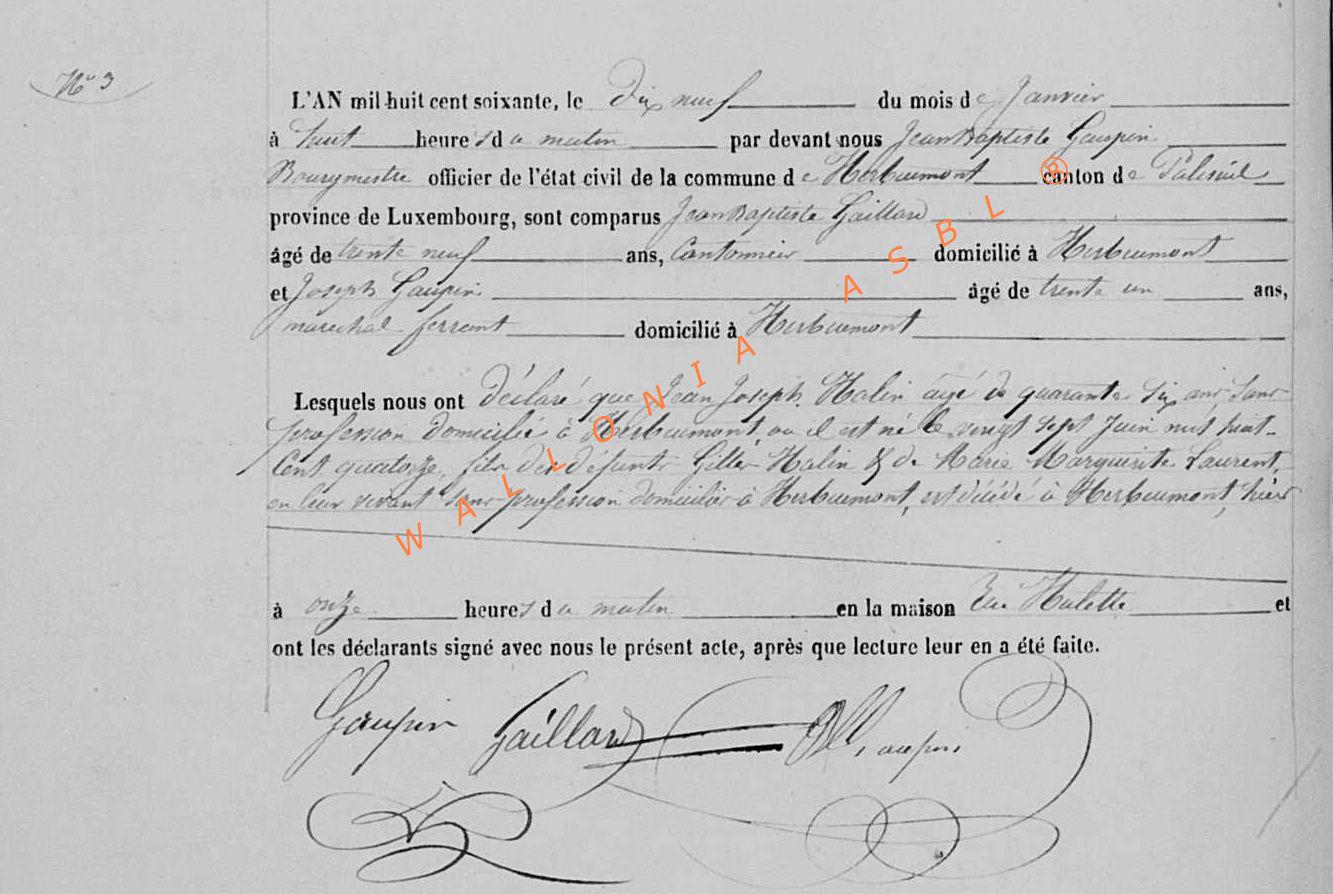 N° 3
L'AN mil huit cent soixante, le Dix neuf du mois de Janvier
à huit heures du matin par devant nous Jean Baptiste Gaupin
Bourgmestre officier de l'état civil de la commune de Herbeumont canton de Paliseul
province de Luxembourg, sont comparus Jean Baptiste Gaillard
âgé de trente neuf ans, Cantonnier domicilié à Herbeumont
et Joseph Gaupin âgé de trente un ans,
marechal ferrant domicilié à Herbeumont
Lesquels nous ont déclaré que Jean Joseph Halin âgé de quarante six ans sans
profession domicilié à Herbeumont, ou il est né le vingt sept Juin mil huit-
Cent quatorze, fils des défunts Gilles Halin & de Marie Marguerite Laurent,
en leur vivant sans profession domiciliés à Herbeumont, est décédé à Herbeumont, hier
à onze heures du matin en la maison Rue Hulette et
ont les déclarants signé avec nous le présent acte, après que lecture leur en a été faite.
Gaupin Gaillard Gaupin
WALLONIA ASBL ®